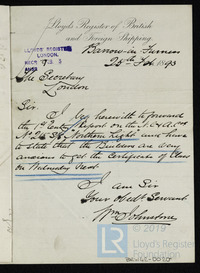 Lloyd's Register of British
and Foreign Shipping.
Barrow in Furness
25th Feb 1893
LLOYD'S REGISTER
LONDON.
The Secretary
London
Sir
I beg herewith to forward
the 1st Entry Report on the
"Northern Light" and have
to state that the Builders are very
anxious to get the Certificate of Class
on Wednesday next.
I am Sir
Your Obedt Servant
Wm Johnstone
© 2019
Lloyd's Register
Foundation